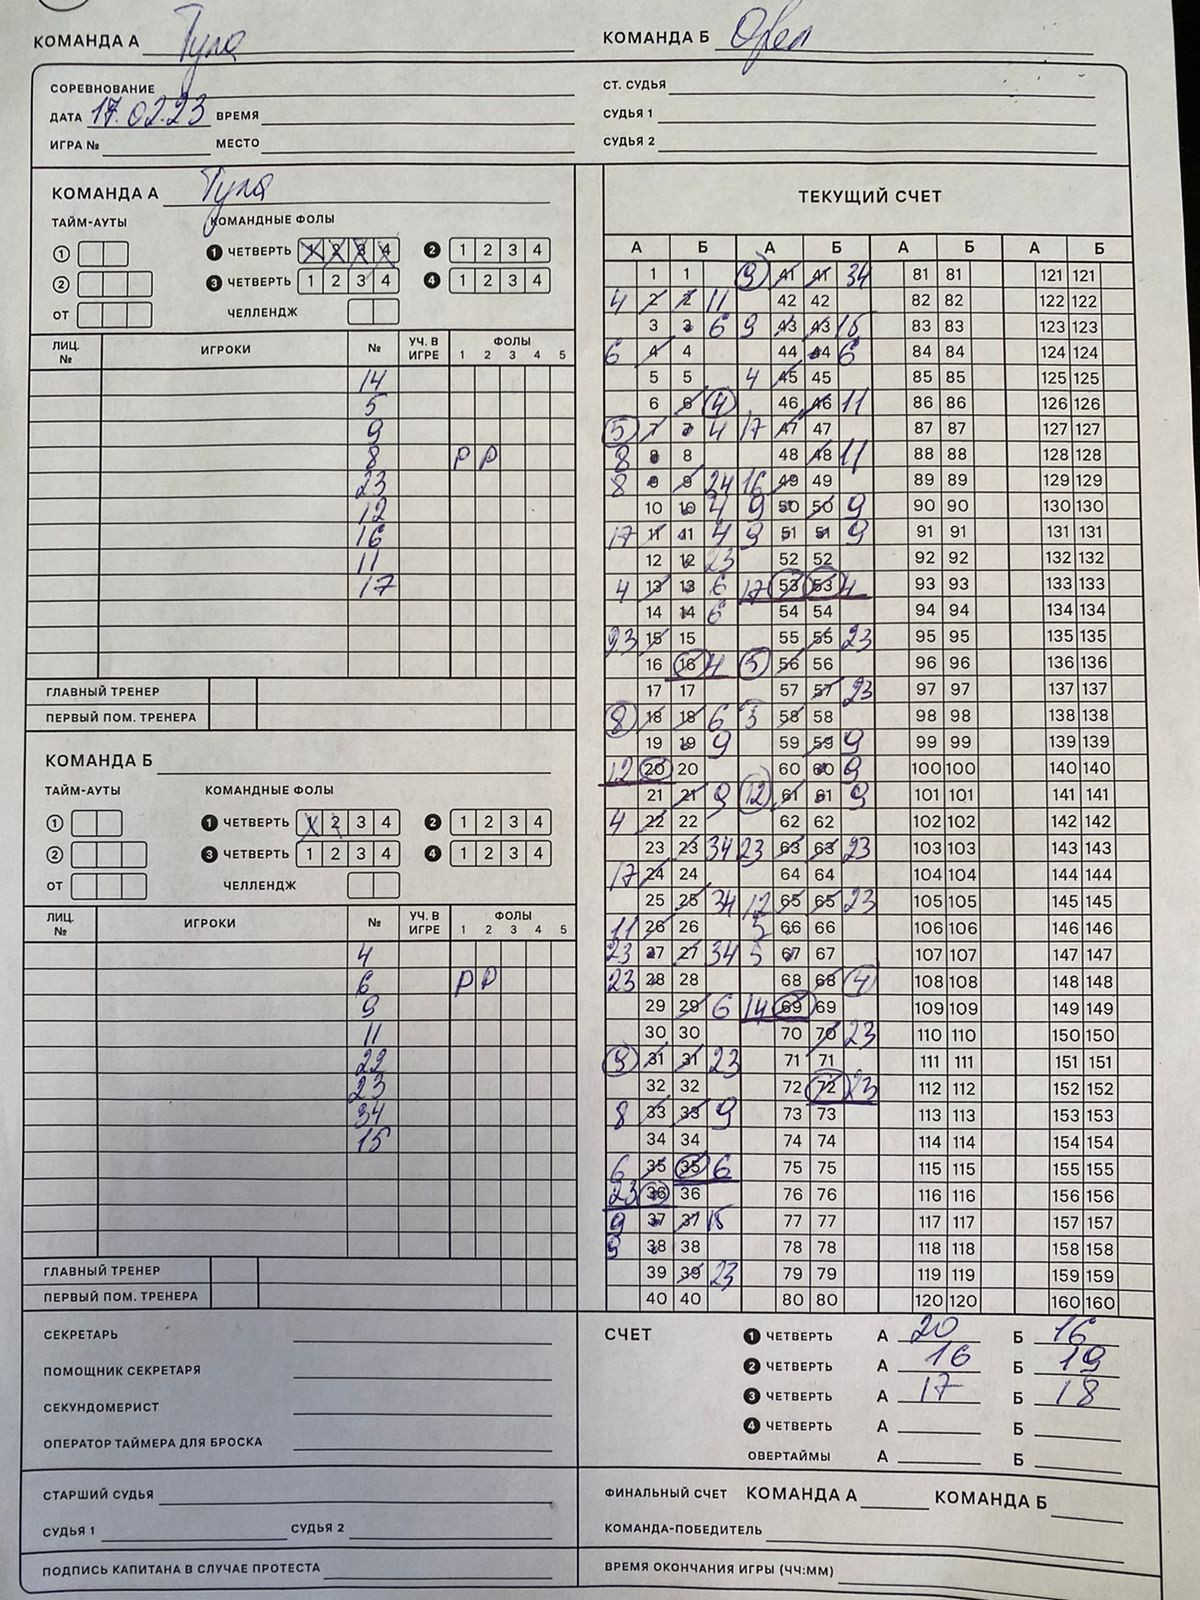 КОМАНДА А Тула КОМАНДА Б Орел
СОРЕВНОВАНИЕ
ДАТА 17.02.23 ВРЕМЯ
ИГРА № МЕСТО
СТ. СУДЬЯ
СУДЬЯ 1
СУДЬЯ 2
КОМАНДА А Тула
ТАЙМ-АУТЫ КОМАНДНЫЕ ФОЛЫ
1 1 ЧЕТВЕРТЬ 1 2 3 4 2 1 2 3 4
2 3 ЧЕТВЕРТЬ 1 2 3 4 4 1 2 3 4
ОТ ЧЕЛЛЕНДЖ
ЛИЦ. № ИГРОКИ № УЧ. В ИГРЕ ФОЛЫ 1 2 3 4 5
14
5
9
8 P P
23
12
16
11
17
ГЛАВНЫЙ ТРЕНЕР
ПЕРВЫЙ ПОМ. ТРЕНЕРА
КОМАНДА Б
ТАЙМ-АУТЫ КОМАНДНЫЕ ФОЛЫ
1 1 ЧЕТВЕРТЬ 1 2 3 4 2 1 2 3 4
2 3 ЧЕТВЕРТЬ 1 2 3 4 4 1 2 3 4
ОТ ЧЕЛЛЕНДЖ
ЛИЦ. № ИГРОКИ № УЧ. В ИГРЕ ФОЛЫ 1 2 3 4 5
4
6 P P
9
11
22
23
34
15
ГЛАВНЫЙ ТРЕНЕР
ПЕРВЫЙ ПОМ. ТРЕНЕРА
СЕКРЕТАРЬ
ПОМОЩНИК СЕКРЕТАРЯ
СЕКУНДОМЕРИСТ
ОПЕРАТОР ТАЙМЕРА ДЛЯ БРОСКА
СТАРШИЙ СУДЬЯ
СУДЬЯ 1 СУДЬЯ 2
ПОДПИСЬ КАПИТАНА В СЛУЧАЕ ПРОТЕСТА
ТЕКУЩИЙ СЧЕТ
А Б А Б А Б А Б
1 1 9 41 41 34 81 81 121 121
4 2 2 11 42 42 82 82 122 122
3 3 6 9 43 43 15 83 83 123 123
6 4 4 44 44 6 84 84 124 124
5 5 4 45 45 85 85 125 125
6 6 4 46 46 11 86 86 126 126
5 7 7 4 17 47 47 87 87 127 127
8 8 8 48 48 11 88 88 128 128
8 9 9 24 16 49 49 89 89 129 129
10 10 4 9 50 50 9 90 90 130 130
17 11 11 4 9 51 51 9 91 91 131 131
12 12 23 52 52 92 92 132 132
4 13 13 6 17 53 53 4 93 93 133 133
14 14 6 54 54 94 94 134 134
23 15 15 55 55 23 95 95 135 135
16 16 4 5 56 56 96 96 136 136
17 17 57 57 23 97 97 137 137
8 18 18 6 58 58 98 98 138 138
19 19 9 59 59 9 99 99 139 139
12 20 20 60 60 9 100 100 140 140
21 21 9 12 61 61 9 101 101 141 141
4 22 22 62 62 102 102 142 142
23 23 34 23 63 63 23 103 103 143 143
17 24 24 64 64 104 104 144 144
25 25 34 12 65 65 23 105 105 145 145
11 26 26 5 66 66 106 106 146 146
23 27 27 34 5 67 67 107 107 147 147
23 28 28 68 68 4 108 108 148 148
29 29 6 14 69 69 109 109 149 149
30 30 70 70 23 110 110 150 150
9 31 31 23 71 71 111 111 151 151
32 32 72 72 23 112 112 152 152
8 33 33 9 73 73 113 113 153 153
34 34 74 74 114 114 154 154
6 35 35 6 75 75 115 115 155 155
23 36 36 76 76 116 116 156 156
9 37 37 15 77 77 117 117 157 157
38 38 78 78 118 118 158 158
39 39 23 79 79 119 119 159 159
40 40 80 80 120 120 160 160
СЧЕТ 1 ЧЕТВЕРТЬ А 20 Б 16
2 ЧЕТВЕРТЬ А 16 Б 19
3 ЧЕТВЕРТЬ А 17 Б 18
4 ЧЕТВЕРТЬ А Б
ОВЕРТАЙМЫ А Б
ФИНАЛЬНЫЙ СЧЕТ КОМАНДА А КОМАНДА Б
КОМАНДА-ПОБЕДИТЕЛЬ
ВРЕМЯ ОКОНЧАНИЯ ИГРЫ (ЧЧ:ММ)